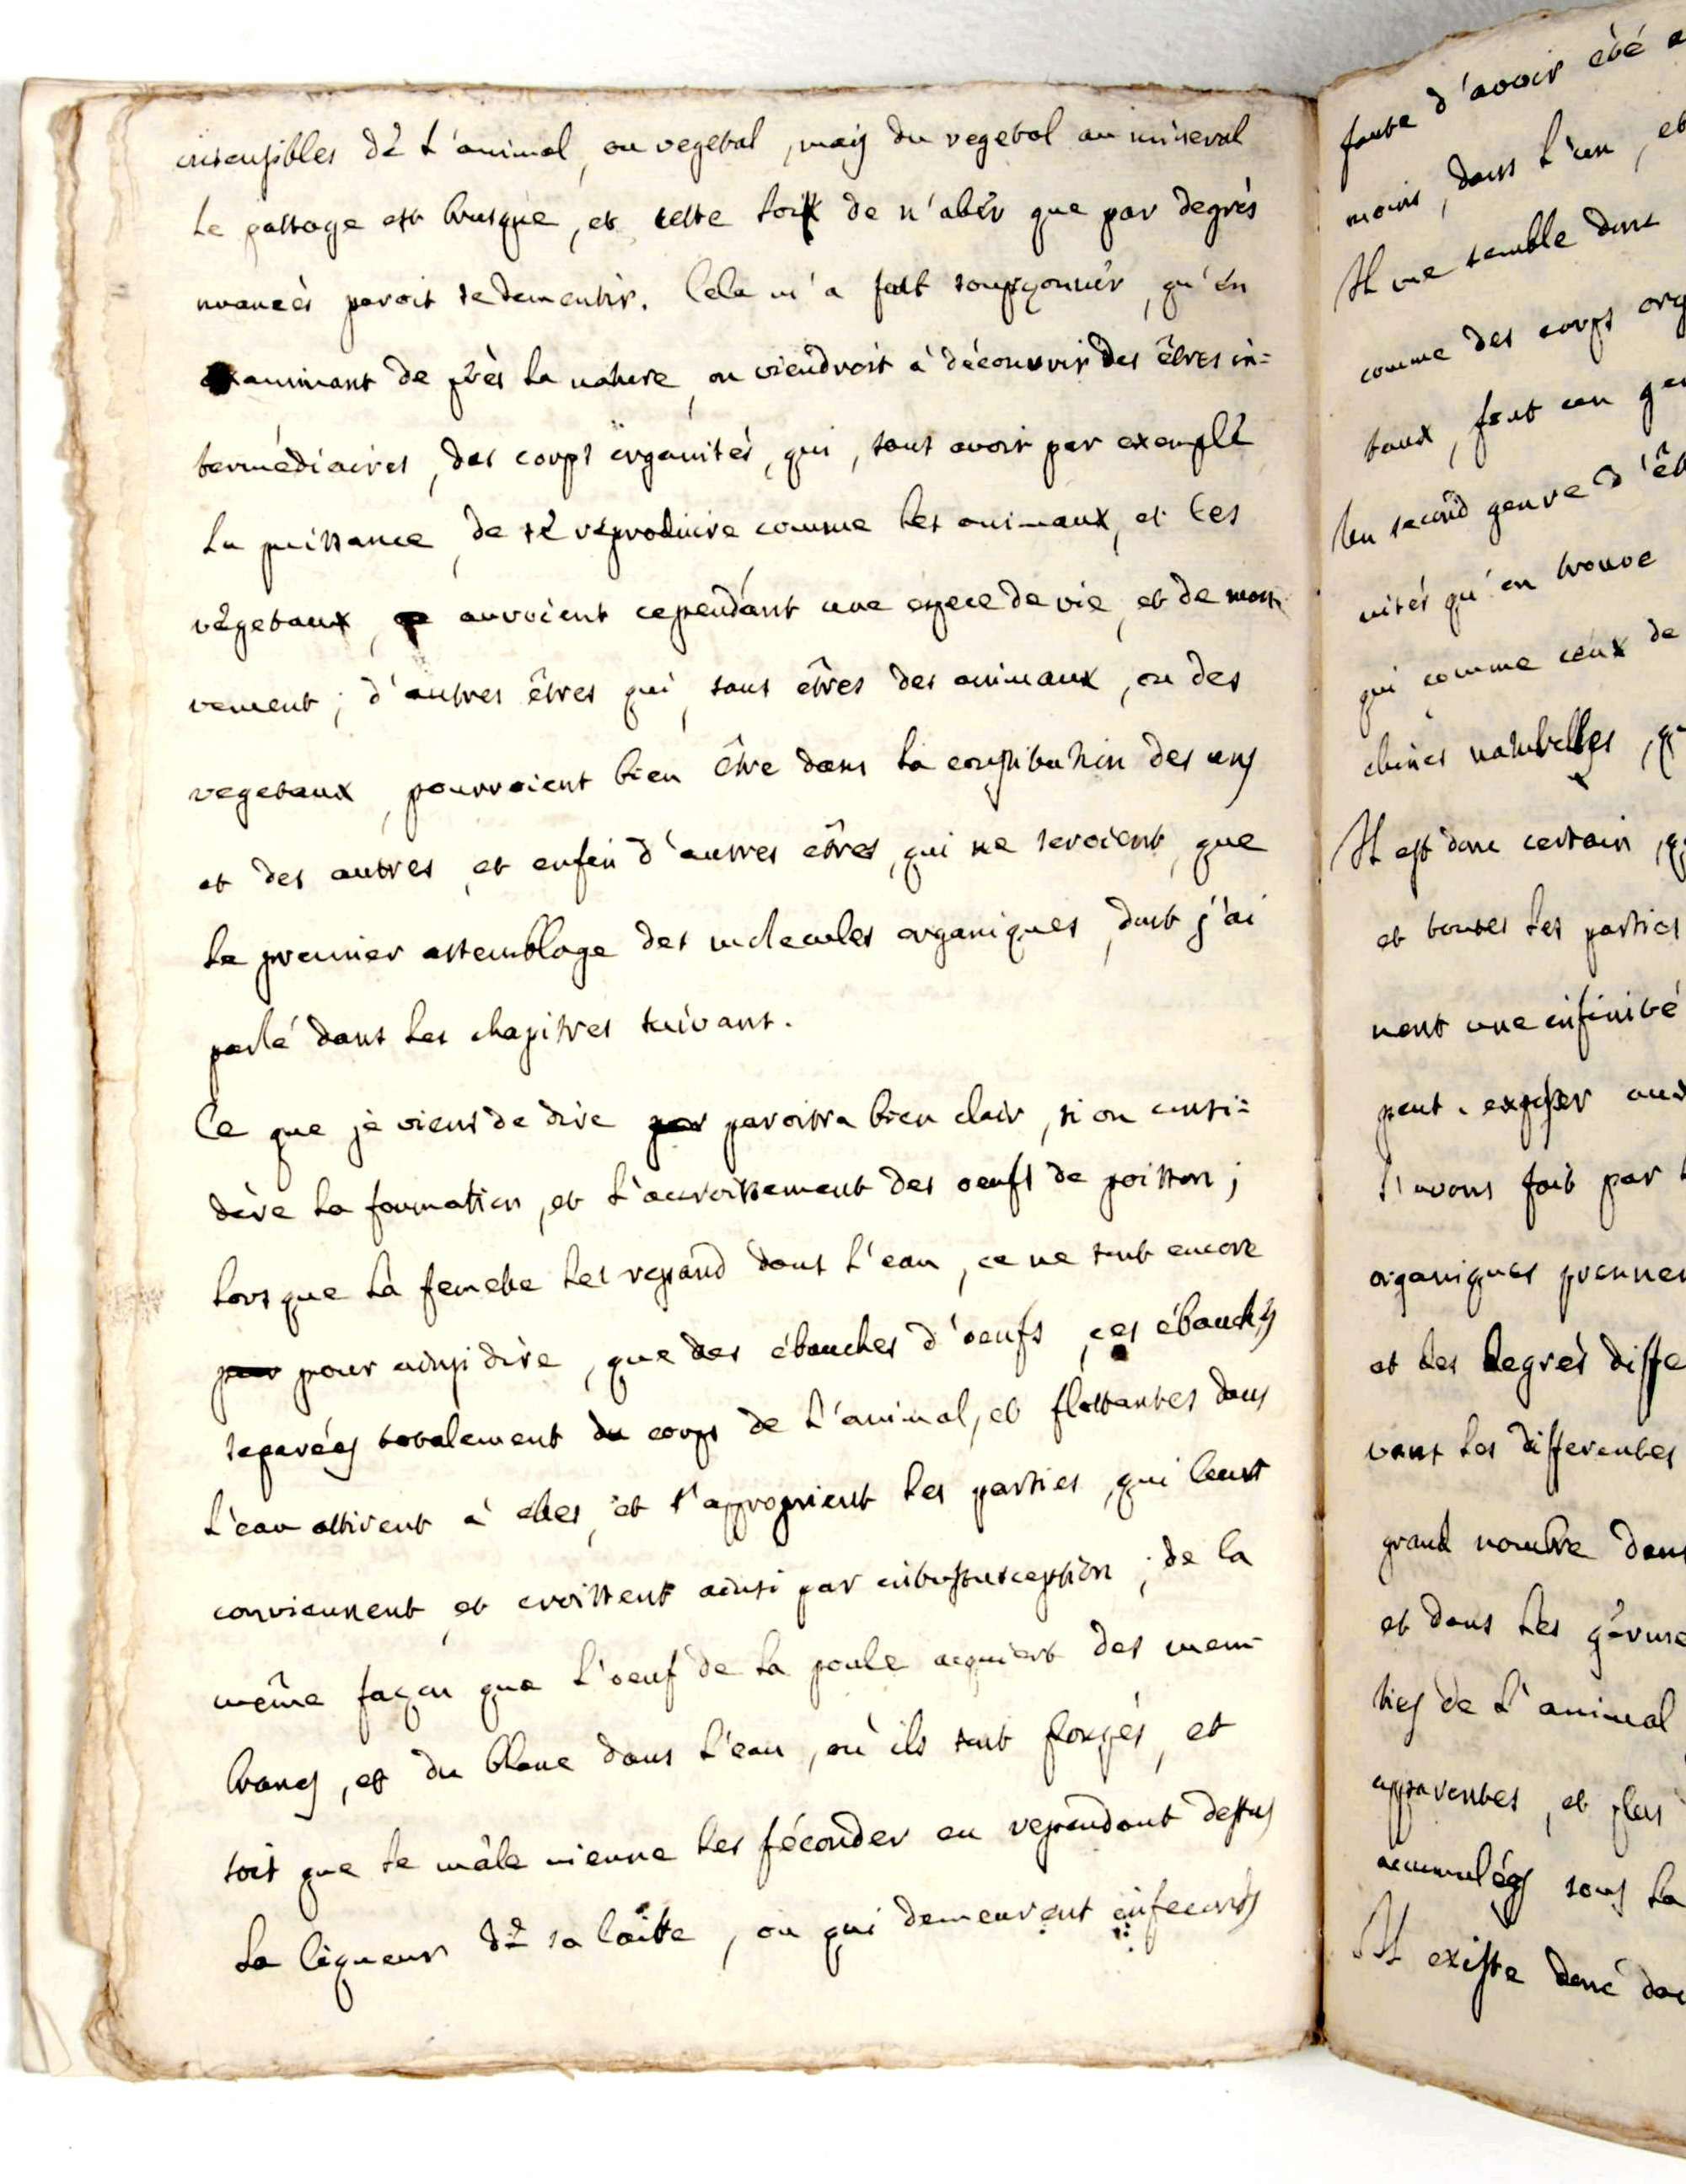 insensibles de l'animal, au vegetal, mais du vegetal au mineral
le passage est brusque, et cette loix de n'aler que par degrès
nuancès paroit se dementir. Cela m'a fait soupçonnér, qu'en
examinant de près la nature, on viendroit à découvrir des êtres in=
termédiaires, des corps organisés, qui, sans avoir par exemple
la puissance, de se réproduire comme les animaux, et les
végetaux, auroient cependant une espece de vie, et de mou-
vement; d'autres êtres qui, sans êtres des animaux, ou des
vegetaux, pourroient bien être dans la constitution des uns
et des autres, et enfin d'autres êtres, qui ne seroient, que
le premier assemblage des molecules organiques, dont j'ai
parlé dans les chapitres suivant.
Ce que je viens de dire par paroitra bien clair, si on consi=
dère la formation, et l'accroissement des oeufs de poisson;
lors que la femelle les repand dans l'eau, ce ne sont encore
pour pour ainsi dire, que des ébauches d'oeufs, ces ébauches
separées totalement du corps de l'animal, et flottantes dans
l'eau attirent à elles, et s'approprient les parties, qui leurs
conviennent, et croissent ainsi par intussusception; de la
même façon que l'oeuf de la poule acquiert des mem-
branes, et du blanc dans l'eau, où ils sont plongés, et
soit que le mâle vienne les féconder en repandant dessus
la liqueur de sa laitte, ou qui demeurent infeconds
faute d'avoir été
moins, dans l'un, et
Il me semble donc
comme des corps org
taux, font un gen
Un second genre d'êt
nités qu'on trouve
qui comme ceux de
chines naturelles, q
Il est donc certain, q
et toutes les parties
nent une infinité
peut. exposer aux
l'avons fait par l
organiques prennen
et les degrés diffe
vant les differentes
grand nombre dans
et dans les germe
ties de l'animal
apparentes, et plus
accumulées sous la
Il existe donc da